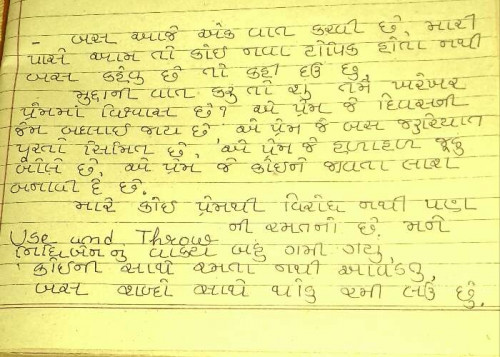 - બસ આજે એક વાત કરવી છે, મારી
પાસે આમ તો કોઇ નવા ટોપિક હોતા નથી
બસ કહેવુ છે તો કહી દઉ છુ.
મુદ્દાની વાત કરુ તો શુ તમે ખરેખર
પ્રેમમાં વિશ્વાસ છે? એ પ્રેમ જે દિવસની
જેમ બદલાઈ જાય છે, એ પ્રેમ જે બસ જરુરિયાત
પૂરતો સિમિત છે, એ પ્રેમ જે હળાહળ જૂઠુ
બોલે છે, એ પ્રેમ જે કોઇને જીવતા લાશ
બનાવી દે છે.
મારે કોઇ પ્રેમથી વિરોધ નથી પણ
Use and Throw ની રમતનો છે. મને
નિધિબેનનુ વાક્ય બહુ ગમી ગયુ,
'કોઇની સાથે રમતા નથી આવડતુ,
બસ શબ્દો સાથે થોડુ રમી લઉ છું.